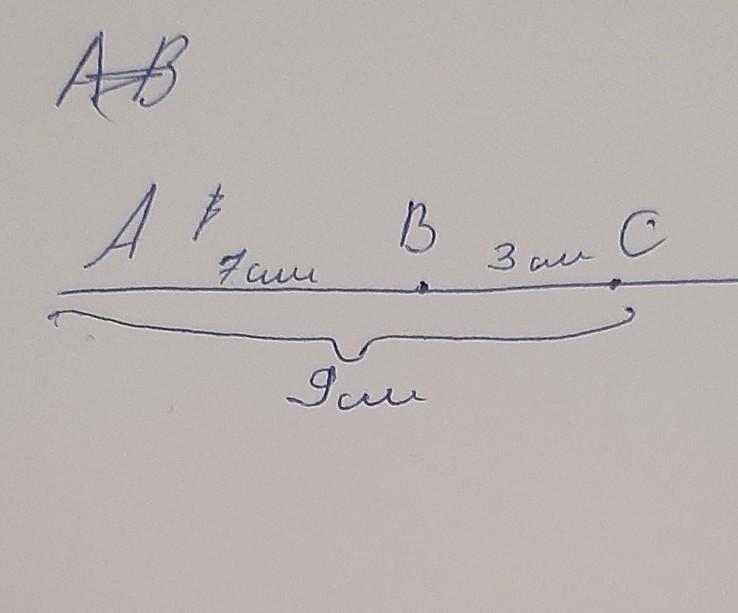 A B
A B C
7см 3см
9см